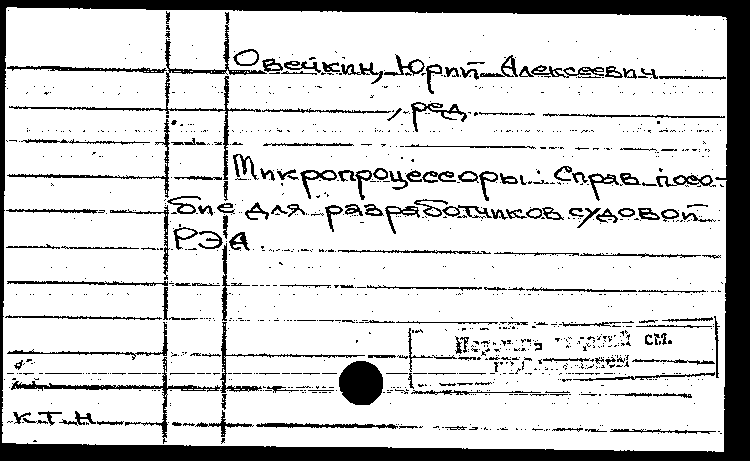 Овейкин, Юрий Алексеевич
, ред.
Микропроцессоры : Справ. посо-
бие для разработчиков судовой
РЭА.
Перечень изданий см.
к.т.н